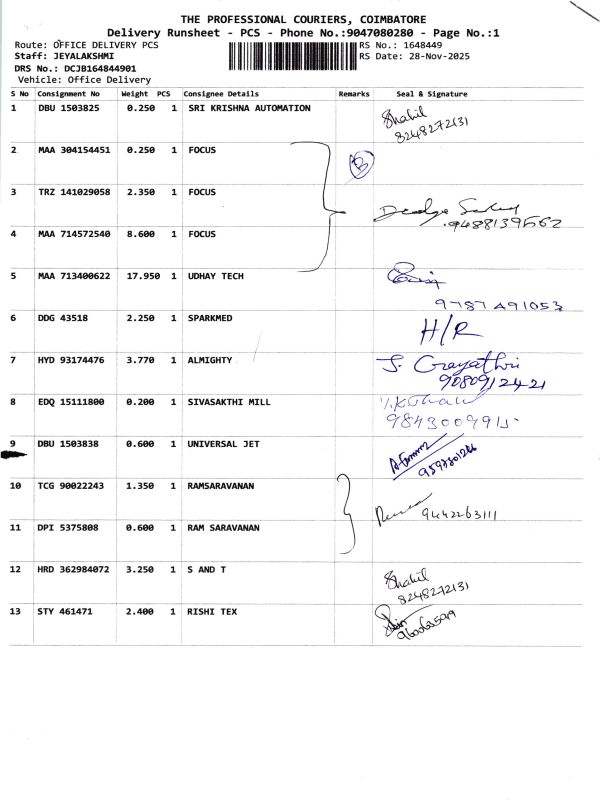 THE PROFESSIONAL COURIERS, COIMBATORE
Delivery Runsheet - PCS - Phone No.:9047080280 - Page No.:1
Route: OFFICE DELIVERY PCS RS No.: 1648449
Staff: JEYALAKSHMI RS Date: 28-Nov-2025
DRS No.: DCJB164844901
Vehicle: Office Delivery
S No Consignment No Weight PCS Consignee Details Remarks Seal & Signature
1 DBU 1503825 0.250 1 SRI KRISHNA AUTOMATION Shahil
8248272131
2 MAA 304154451 0.250 1 FOCUS 3
3 TRZ 141029058 2.350 1 FOCUS
9488139562
4 MAA 714572540 8.600 1 FOCUS
5 MAA 713400622 17.950 1 UDHAY TECH
9787491053
6 DDG 43518 2.250 1 SPARKMED H/R
7 HYD 93174476 3.770 1 ALMIGHTY S. Gayathri
9080912421
8 EDQ 15111800 0.200 1 SIVASAKTHI MILL
9843009915
9 DBU 1503838 0.600 1 UNIVERSAL JET
10 TCG 90022243 1.350 1 RAMSARAVANAN
9442263111
11 DPI 5375808 0.600 1 RAM SARAVANAN
12 HRD 362984072 3.250 1 S AND T Shahil
8248272131
13 STY 461471 2.400 1 RISHI TEX